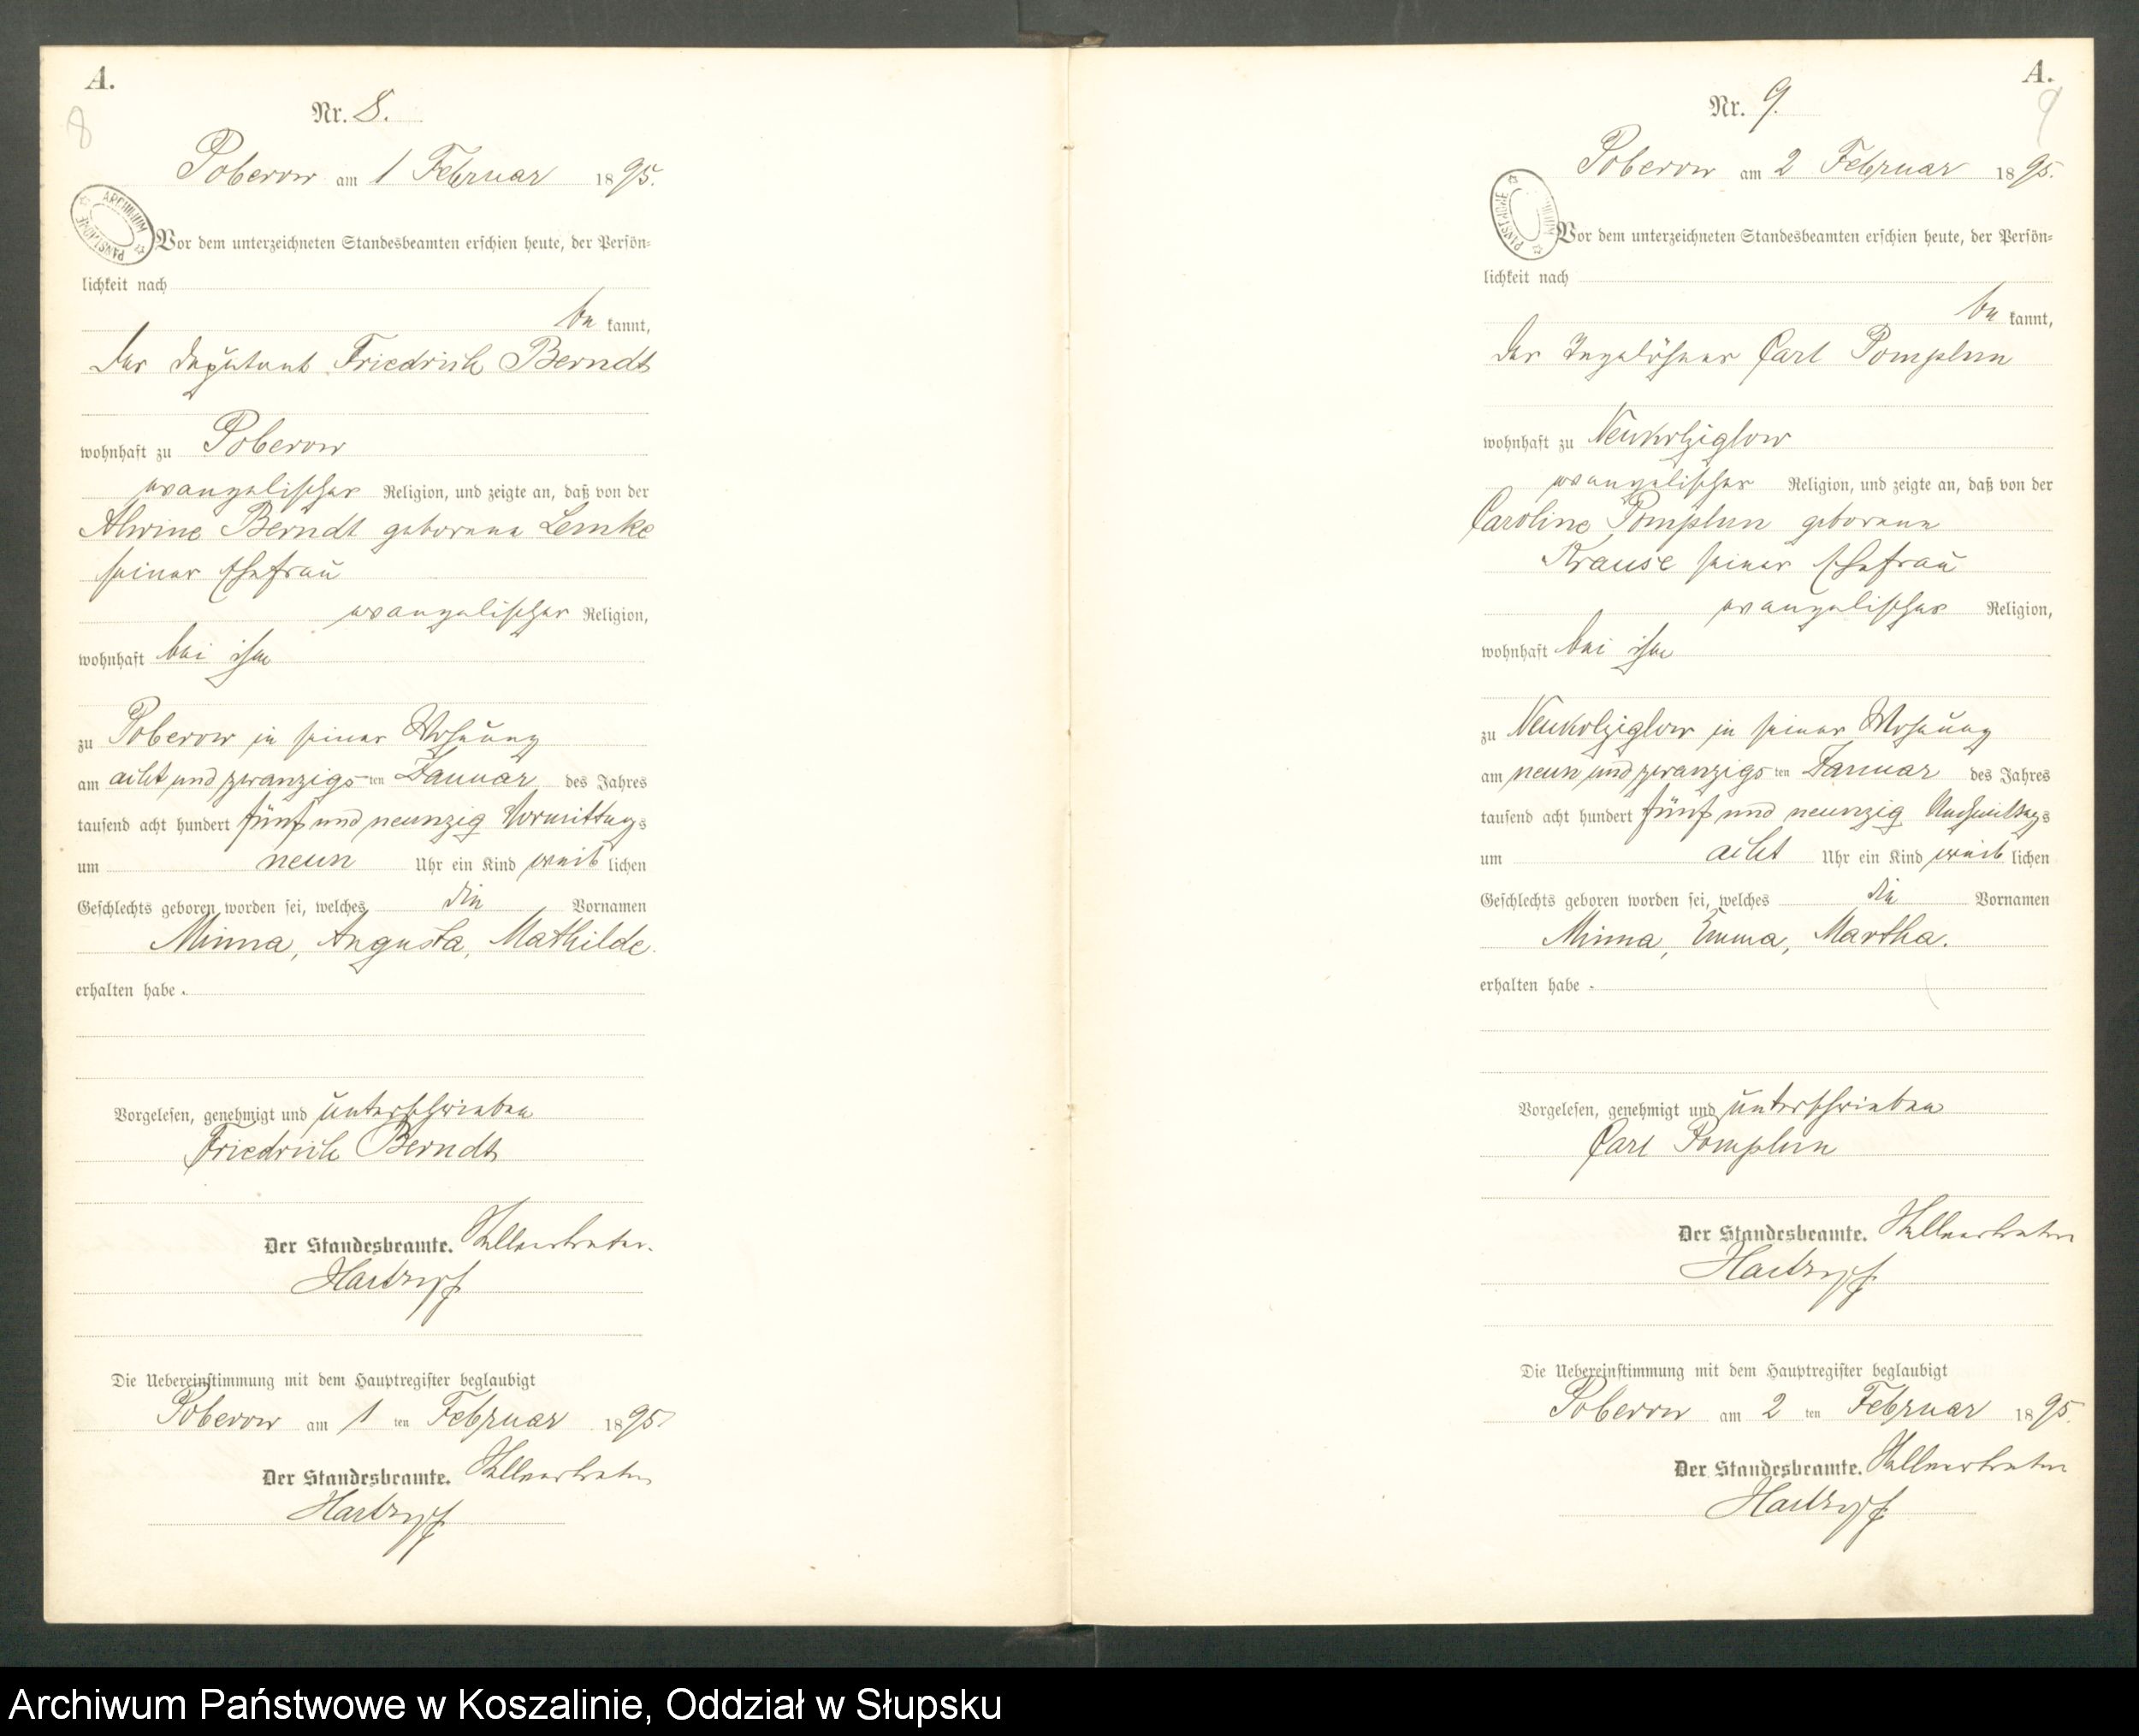 A.
8
Nr. 8.
Poberow am 1 Februar 1895.
ARCHIWUM PAŃSTWOWE
Vor dem unterzeichneten Standesbeamten erschien heute, der Persön-
lichkeit nach
be kannt,
der Deputant Friedrich Berndt
wohnhaft zu Poberow
evangelischer Religion, und zeigte an, daß von der
Alwine Berndt geborene Lemke
seiner Ehefrau
evangelischer Religion,
wohnhaft bei ihm
zu Poberow in seiner Wohnung
am acht und zwanzigs ten Januar des Jahres
tausend acht hundert fünf und neunzig Vormittags
um neun Uhr ein Kind weib lichen
Geschlechts geboren worden sei, welches die Vornamen
Minna, Augusta, Mathilde.
erhalten habe.
Vorgelesen, genehmigt und unterschrieben
Friedrich Berndt
Der Standesbeamte. Stellvertreter.
Die Uebereinstimmung mit dem Hauptregister beglaubigt
Poberow am 1 ten Februar 1895.
Der Standesbeamte. Stellvertreter
A.
9
Nr. 9.
Poberow am 2 Februar 1895.
ARCHIWUM PAŃSTWOWE
Vor dem unterzeichneten Standesbeamten erschien heute, der Persön-
lichkeit nach
be kannt,
der Tagelöhner Carl Pomplun
wohnhaft zu Neukolziglow
evangelischer Religion, und zeigte an, daß von der
Caroline Pomplun geborene
Krause seiner Ehefrau
evangelischer Religion,
wohnhaft bei ihm
zu Neukolziglow in seiner Wohnung
am neun und zwanzigs ten Januar des Jahres
tausend acht hundert fünf und neunzig Nachmittags
um acht Uhr ein Kind weib lichen
Geschlechts geboren worden sei, welches die Vornamen
Minna, Emma, Martha.
erhalten habe.
Vorgelesen, genehmigt und unterschrieben
Carl Pomplun
Der Standesbeamte. Stellvertreter
Die Uebereinstimmung mit dem Hauptregister beglaubigt
Poberow am 2 ten Februar 1895.
Der Standesbeamte. Stellvertreter
Archiwum Państwowe w Koszalinie, Oddział w Słupsku